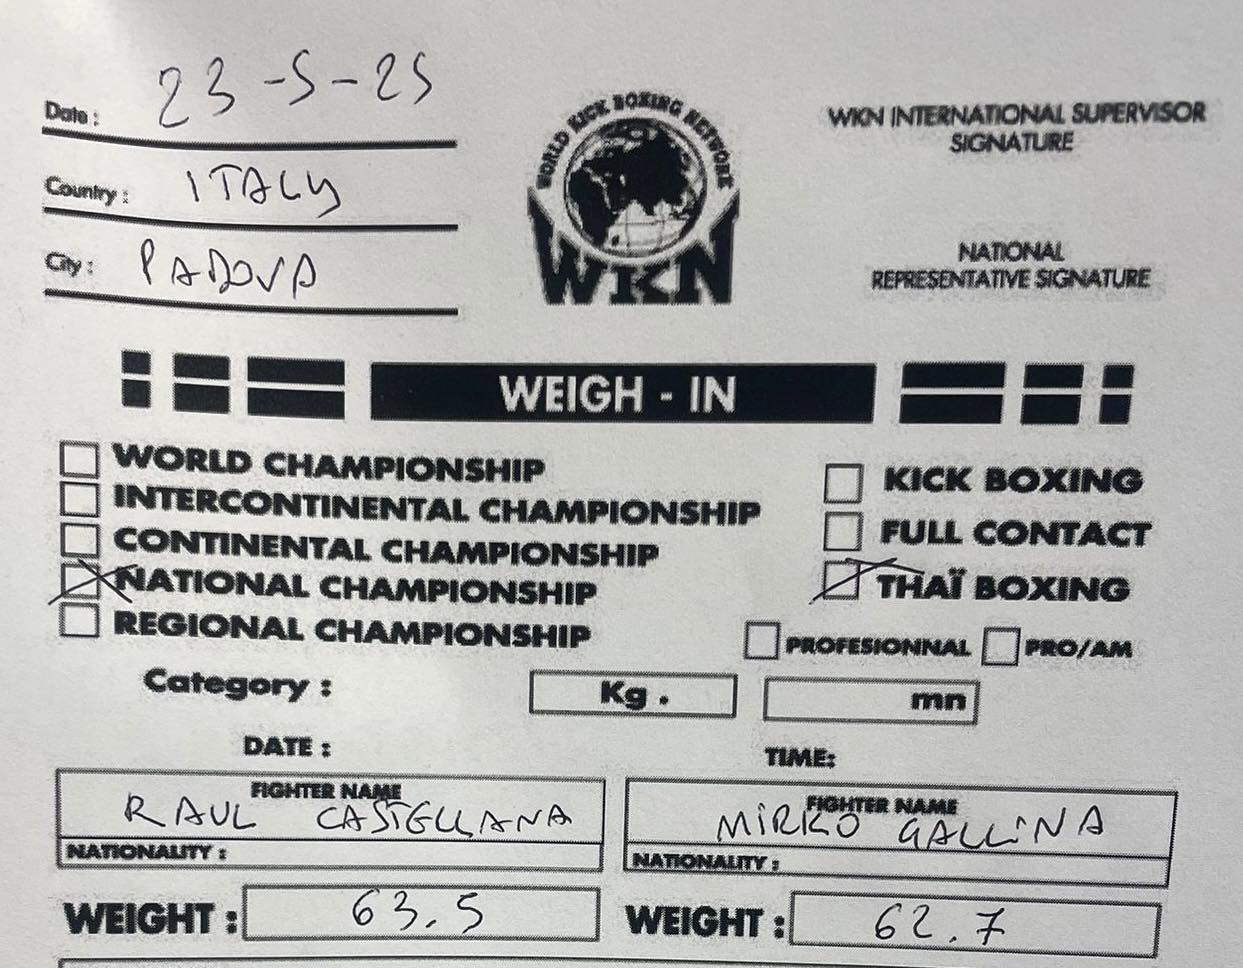 Date : 23-5-25
Country : ITALY
City : PADOVA
WORLD KICK BOXING NETWORK
WKN
WKN INTERNATIONAL SUPERVISOR
SIGNATURE
NATIONAL
REPRESENTATIVE SIGNATURE
WEIGH - IN
WORLD CHAMPIONSHIP
INTERCONTINENTAL CHAMPIONSHIP
CONTINENTAL CHAMPIONSHIP
NATIONAL CHAMPIONSHIP
REGIONAL CHAMPIONSHIP
KICK BOXING
FULL CONTACT
THAÏ BOXING
PROFESIONNAL PRO/AM
Category : Kg . mn
DATE : TIME:
FIGHTER NAME
RAUL CASTELLANA
NATIONALITY :
WEIGHT : 63.5
FIGHTER NAME
MIRKO GALLINA
NATIONALITY :
WEIGHT : 62.7